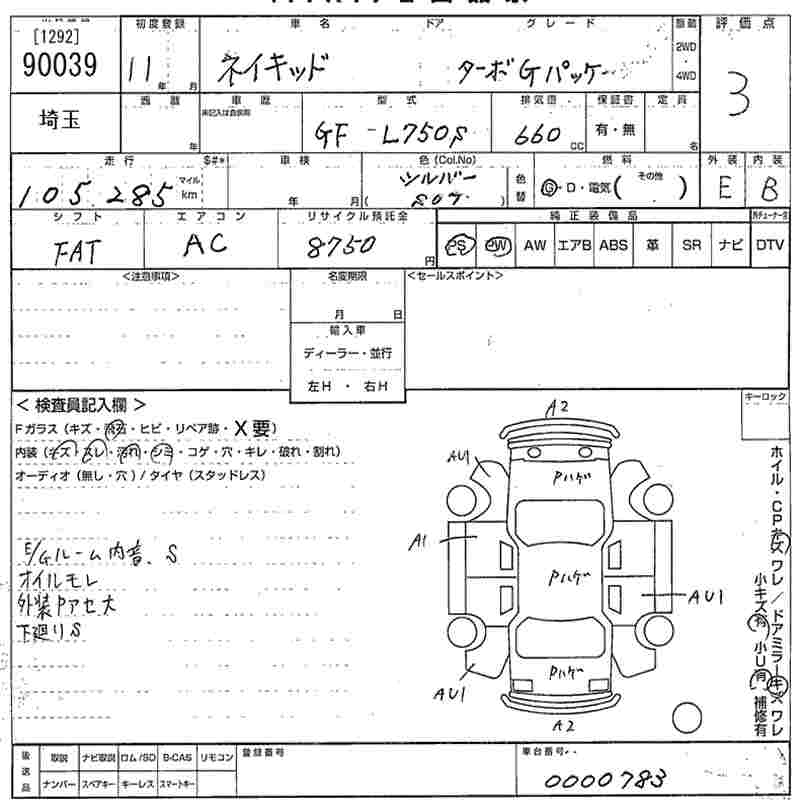 [1292]
90039
初度登録
11年 月
車名 ドア グレード
ネイキッド ターボGパッケー
駆動
2WD
4WD
評価点
3
埼玉
年
車歴
未記入は自家用
型式
GF - L750S
排気量
660 CC
保証書
有・無
定員
名
走行
105,285
マイル
km
車検
年 月
色(Col.No)
シルバー
( S07 )
色替
燃料
G・D・電気( その他 )
外装
E
内装
B
シフト
FAT
エアコン
AC
リサイクル預託金
8750円
純正装備品
PS PW AW エアB ABS 革 SR ナビ
DTV
<注意事項>
名変期限
月 日
輸入車
ディーラー・並行
左H ・ 右H
<セールスポイント>
<検査員記入欄>
Fガラス(キズ・飛石・ヒビ・リペア跡・X要)
内装(キズ・スレ・汚れ・シミ・コゲ・穴・キレ・破れ・割れ)
オーディオ(無し・穴)/タイヤ(スタッドレス)
E/Gルーム内音、S
オイルモレ
外装Pアセ大
下廻りS
A2
AU1
Pハゲ
A1
Pハゲ
AU1
Pハゲ
AU1
A2
キーロック
ホイル・CPキズワレ/ドアミラーキズワレ
小キズ有 小U有 補修有
後送品
取説 ナビ取説 ロム/SD B-CAS リモコン
ナンバー スペアキー キーレス スマートキー
登録番号
車台番号
0000783